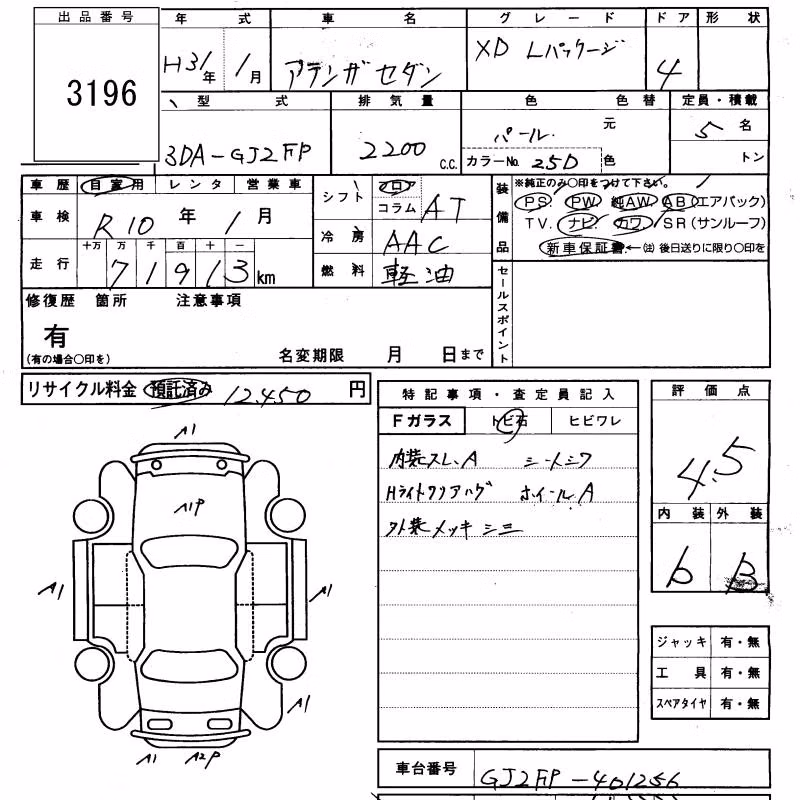 出品番号 3196
年式 車名 グレード ドア 形状
H31年 1月 アテンザ セダン XD Lパッケージ 4
型式 排気量 色 色替 定員・積載
3DA-GJ2FP 2200 c.c. パール 元 5名
カラーNo. 25D 色 トン
車歴 自家用 レンタ 営業車
車検 R10年 1月
走行 十万 万 千 百 十 一
71913km
シフト フロア コラム AT
冷房 AAC
燃料 軽油
装備品 ※純正のみ○印をつけて下さい。
PS. PW 純AW. AB(エアバック)
TV. ナビ. カワ SR(サンルーフ)
新車保証書←(注)後日送りに限り○印を
セールスポイント
修復歴 箇所 注意事項
有
(有の場合○印を) 名変期限 月 日まで
リサイクル料金 預託済み 12,450 円
特記事項・査定員記入
Fガラス トビ石 ヒビワレ
内装スレ、A シートシワ
Hライトクリアハゲ ホイールA
外装メッキシミ
評価点
4.5
内装 外装
b B
ジャッキ 有・無
工具 有・無
スペアタイヤ 有・無
A1
A1P
A1 A1
A1
A1 A2P
車台番号 GJ2FP-401256